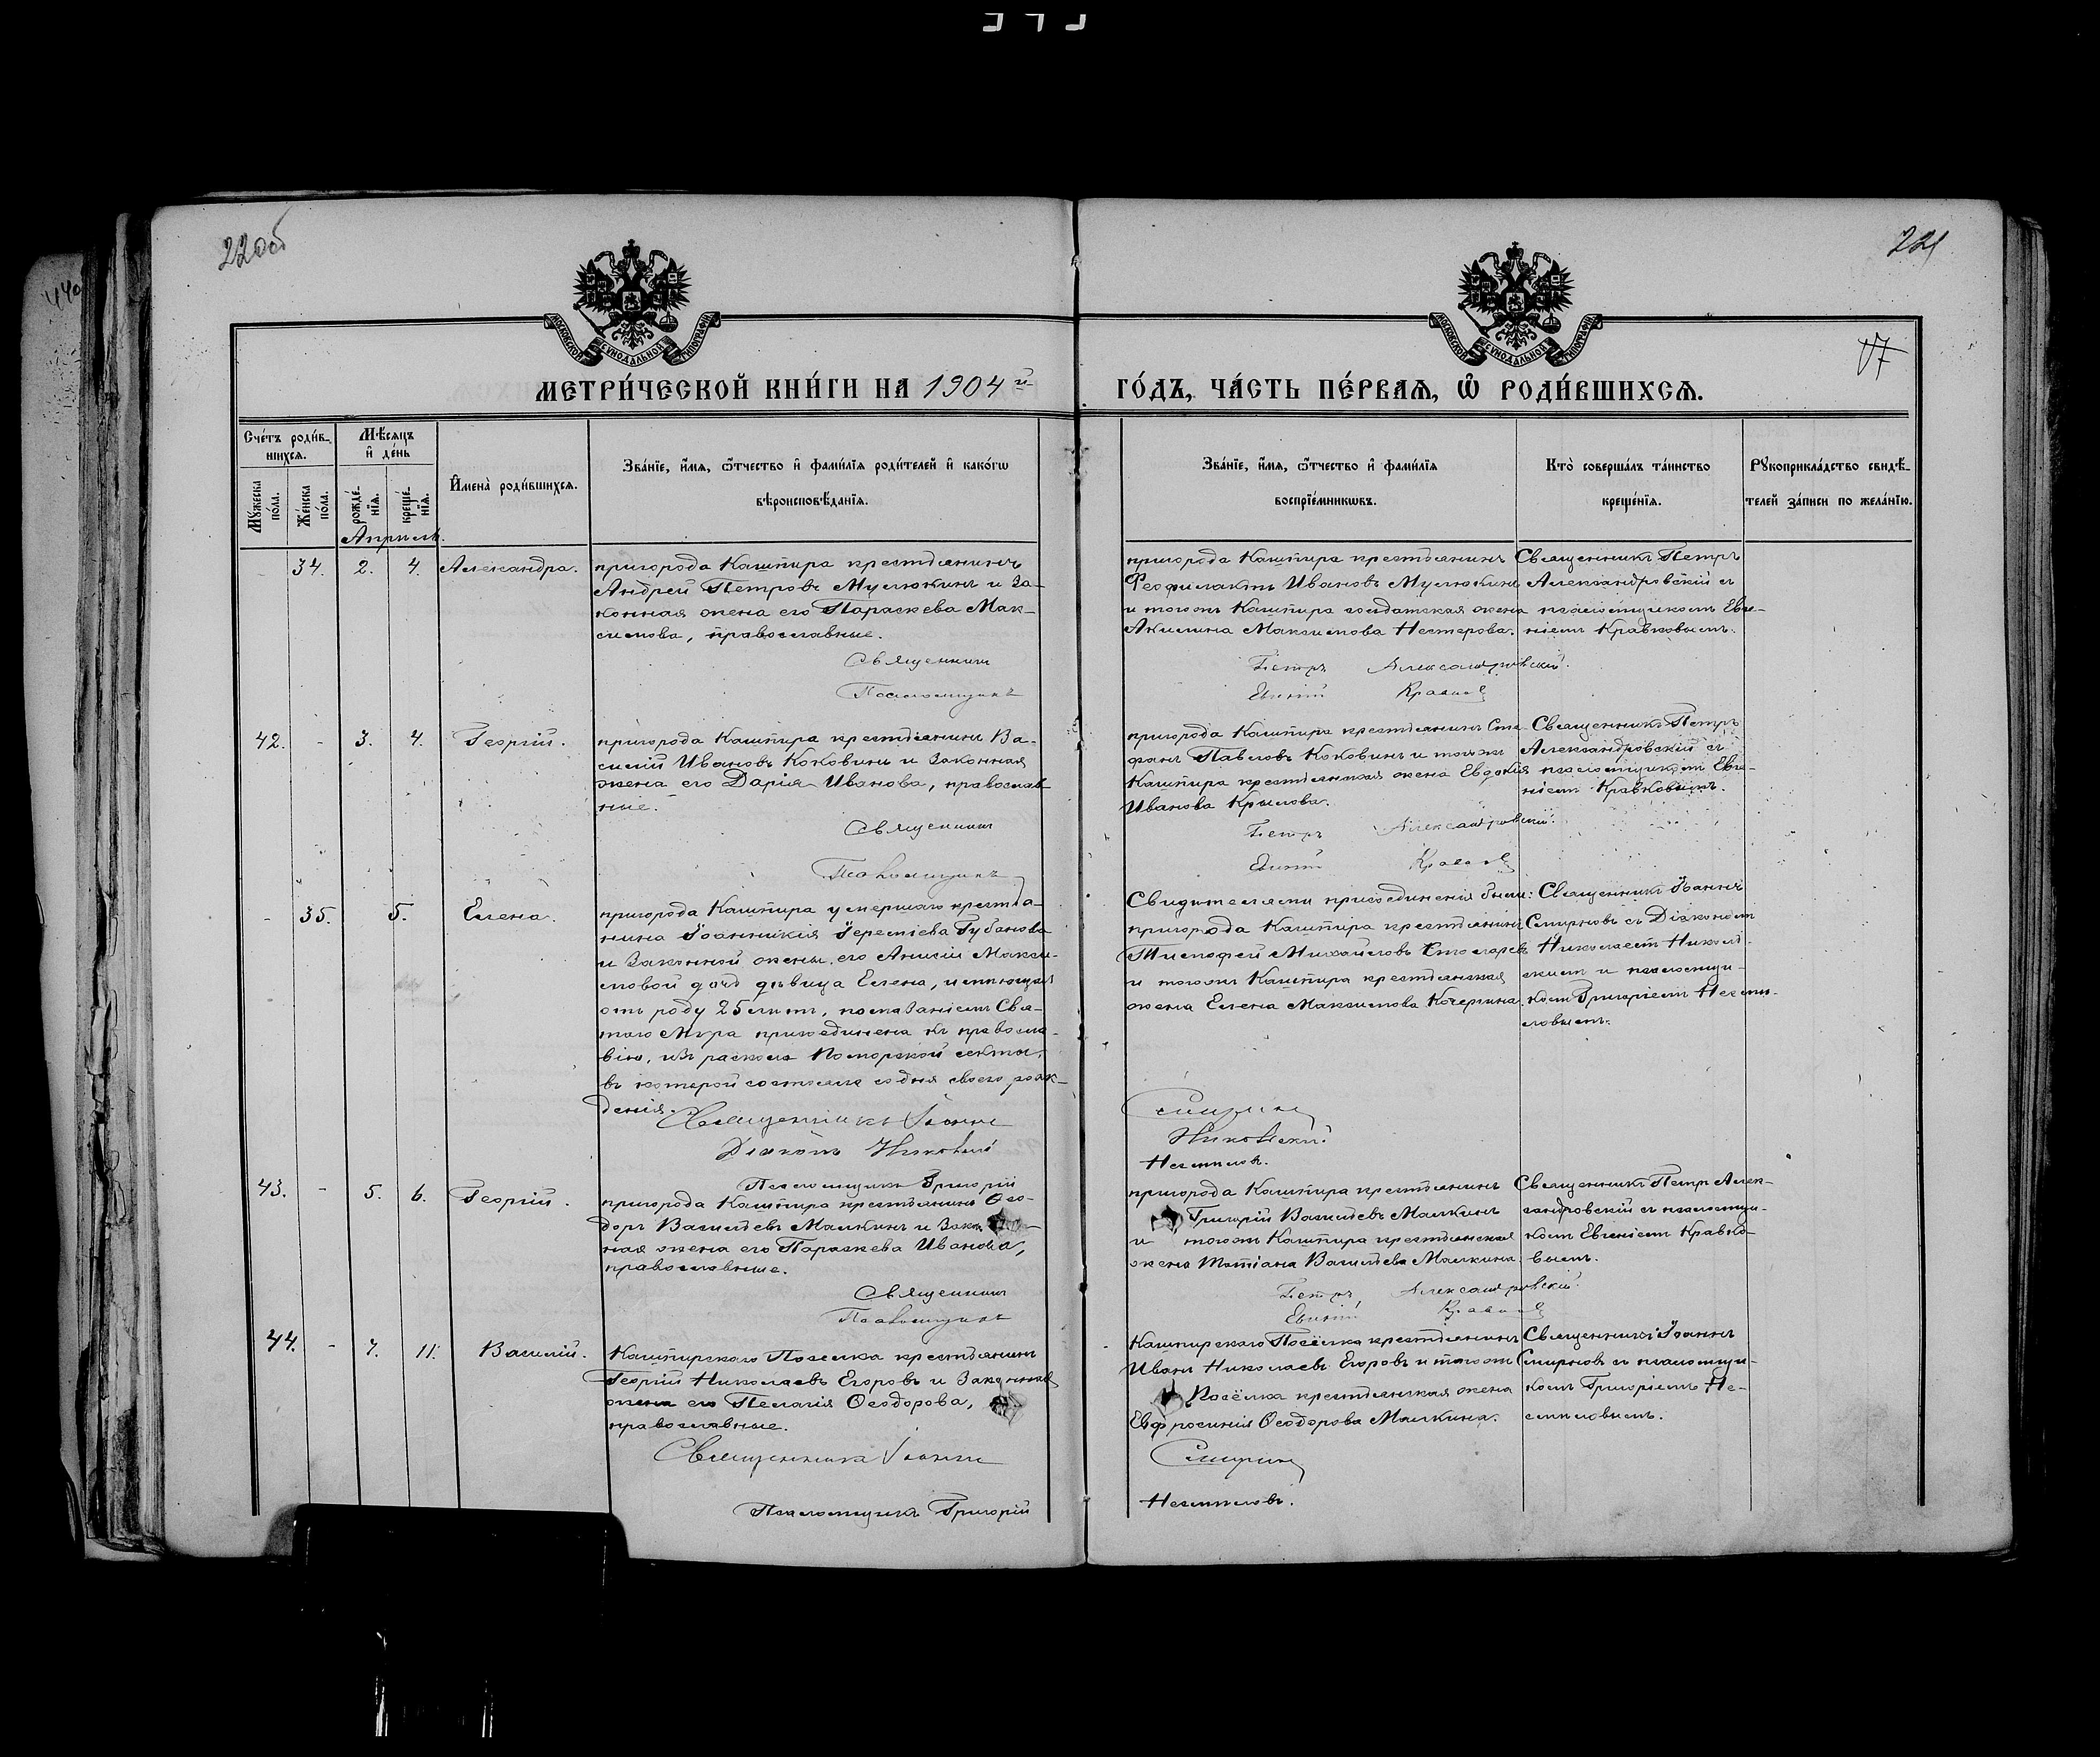 220об
221
440
17
МОСКОВСКОЙ СѴНОДАЛЬНОЙ ТИПОГРАФІИ
МОСКОВСКОЙ СѴНОДАЛЬНОЙ ТИПОГРАФІИ
МЕТРИ́ЧЕСКОЙ КНИ́ГИ НА 1904 й
ГО́ДЪ, ЧА́СТЬ ПЕ́РВАѦ, Ѽ РОДИ́ВШИХСѦ.
Сче́тъ роди́в-
шихсѧ.
Мѣ́сѧцъ
и҆ де́нь
Мꙋ́жеска
по́ла.
Же́нска
по́ла.
рожде́-
нїѧ.
креще́-
нїѧ.
И҆мена̀ роди́вшихсѧ.
Зва́нїе, и҆́мѧ, ѻ҆́тчество и҆ фами́лїѧ роди́телей и҆ како́гѡ
вѣроисповѣ́данїѧ.
Зва́нїе, и҆́мѧ, ѻ҆́тчество и҆ фами́лїѧ
воспрїе́мникѡвъ.
Кто̀ соверша́лъ та́инство
креще́нїѧ.
Рꙋкоприкла́дство свидѣ́-
телей за́писи по жела́нїю.
Апрѣль.
34. 2. 4. Александра.
пригорода Кашпира крестьянинъ
Андрей Петровъ Мулюкинъ и За-
конная жена его Параскева Мак-
симова, православные.
Священникъ
Псаломщикъ
пригорода Кашпира крестьянинъ
Феофилактъ Ивановъ Мулюкинъ
и тогожъ Кашпира солдатская жена
Акилина Максимова Нестерова.
Петръ Александровскій.
Евгеній Кравков
Священникъ Петръ
Александровскій съ
псаломщикомъ Евге-
ніемъ Кравковымъ.
42. - 3. 4. Георгій.
пригорода Кашпира крестьянинъ Ва-
силій Ивановъ Коковинъ и Законная
жена его Дарія Иванова, православ
ные.
Священникъ
Псаломщикъ
пригорода Кашпира крестьянинъ Сте
фанъ Павловъ Коковинъ и тогожъ
Кашпира крестьянская жена Евдокія
Иванова Крылова.
Петръ Александровскій.
Евгеній Кравков
Священникъ Петръ
Александровскій съ
псаломщикомъ Евге-
ніемъ Кравковымъ.
- 35. 5. Елена.
пригорода Кашпира умершаго крестья-
нина Іоанникія Іереміева Губанова
и Законной жены его Анисіи Макси-
мовой дочь дѣвица Елена, имѣющая
отъ роду 25 лѣтъ, помазаніемъ Свя-
таго Мѵра присоединена къ правосла-
вію, изъ раскола Поморской секты,
въ которой состояла со дня своего рож-
денія.
Священникъ Іоаннъ
Діаконъ Николай
Псаломщикъ Григорій
Свидѣтелями присоединенія были:
пригорода Кашпира крестьянинъ
Тимофей Михайловъ Столяровъ
и тогожъ Кашпира крестьянская
жена Елена Максимова Кочергина.
Смирновъ
Никольскій.
Несмѣловъ.
Священникъ Іоаннъ
Смирновъ съ Діакономъ
Николаемъ Николь-
скимъ и псаломщи-
комъ Григоріемъ Несмѣ-
ловымъ.
43. - 5. 6. Георгій.
пригорода Кашпира крестьянинъ Ѳео-
доръ Васильевъ Малкинъ и Закон-
ная жена его Параскева Иванова,
православные.
Священникъ
Псаломщикъ
пригорода Кашпира крестьянинъ
Григорій Васильевъ Малкинъ
и тогожъ Кашпира крестьянская
жена Татіана Васильева Малкина.
Петръ Александровскій.
Евгеній Кравков
Священникъ Петръ Алек-
сандровскій съ псаломщи-
комъ Евгеніемъ Кравко-
вымъ.
44. - 7. 11. Василій.
Кашпирскаго Поселка крестьянинъ
Георгій Николаевъ Егоровъ и Законная
жена его Пелагія Ѳеодорова,
православные.
Священникъ Іоаннъ
Псаломщикъ Григорій
Кашпирскаго Посёлка крестьянинъ
Иванъ Николаевъ Егоровъ и тогожъ
Посёлка крестьянская жена
Евфросинія Ѳеодорова Малкина.
Смирновъ
Несмѣловъ.
Священникъ Іоаннъ
Смирновъ съ псаломщи-
комъ Григоріемъ Не-
смѣловымъ.